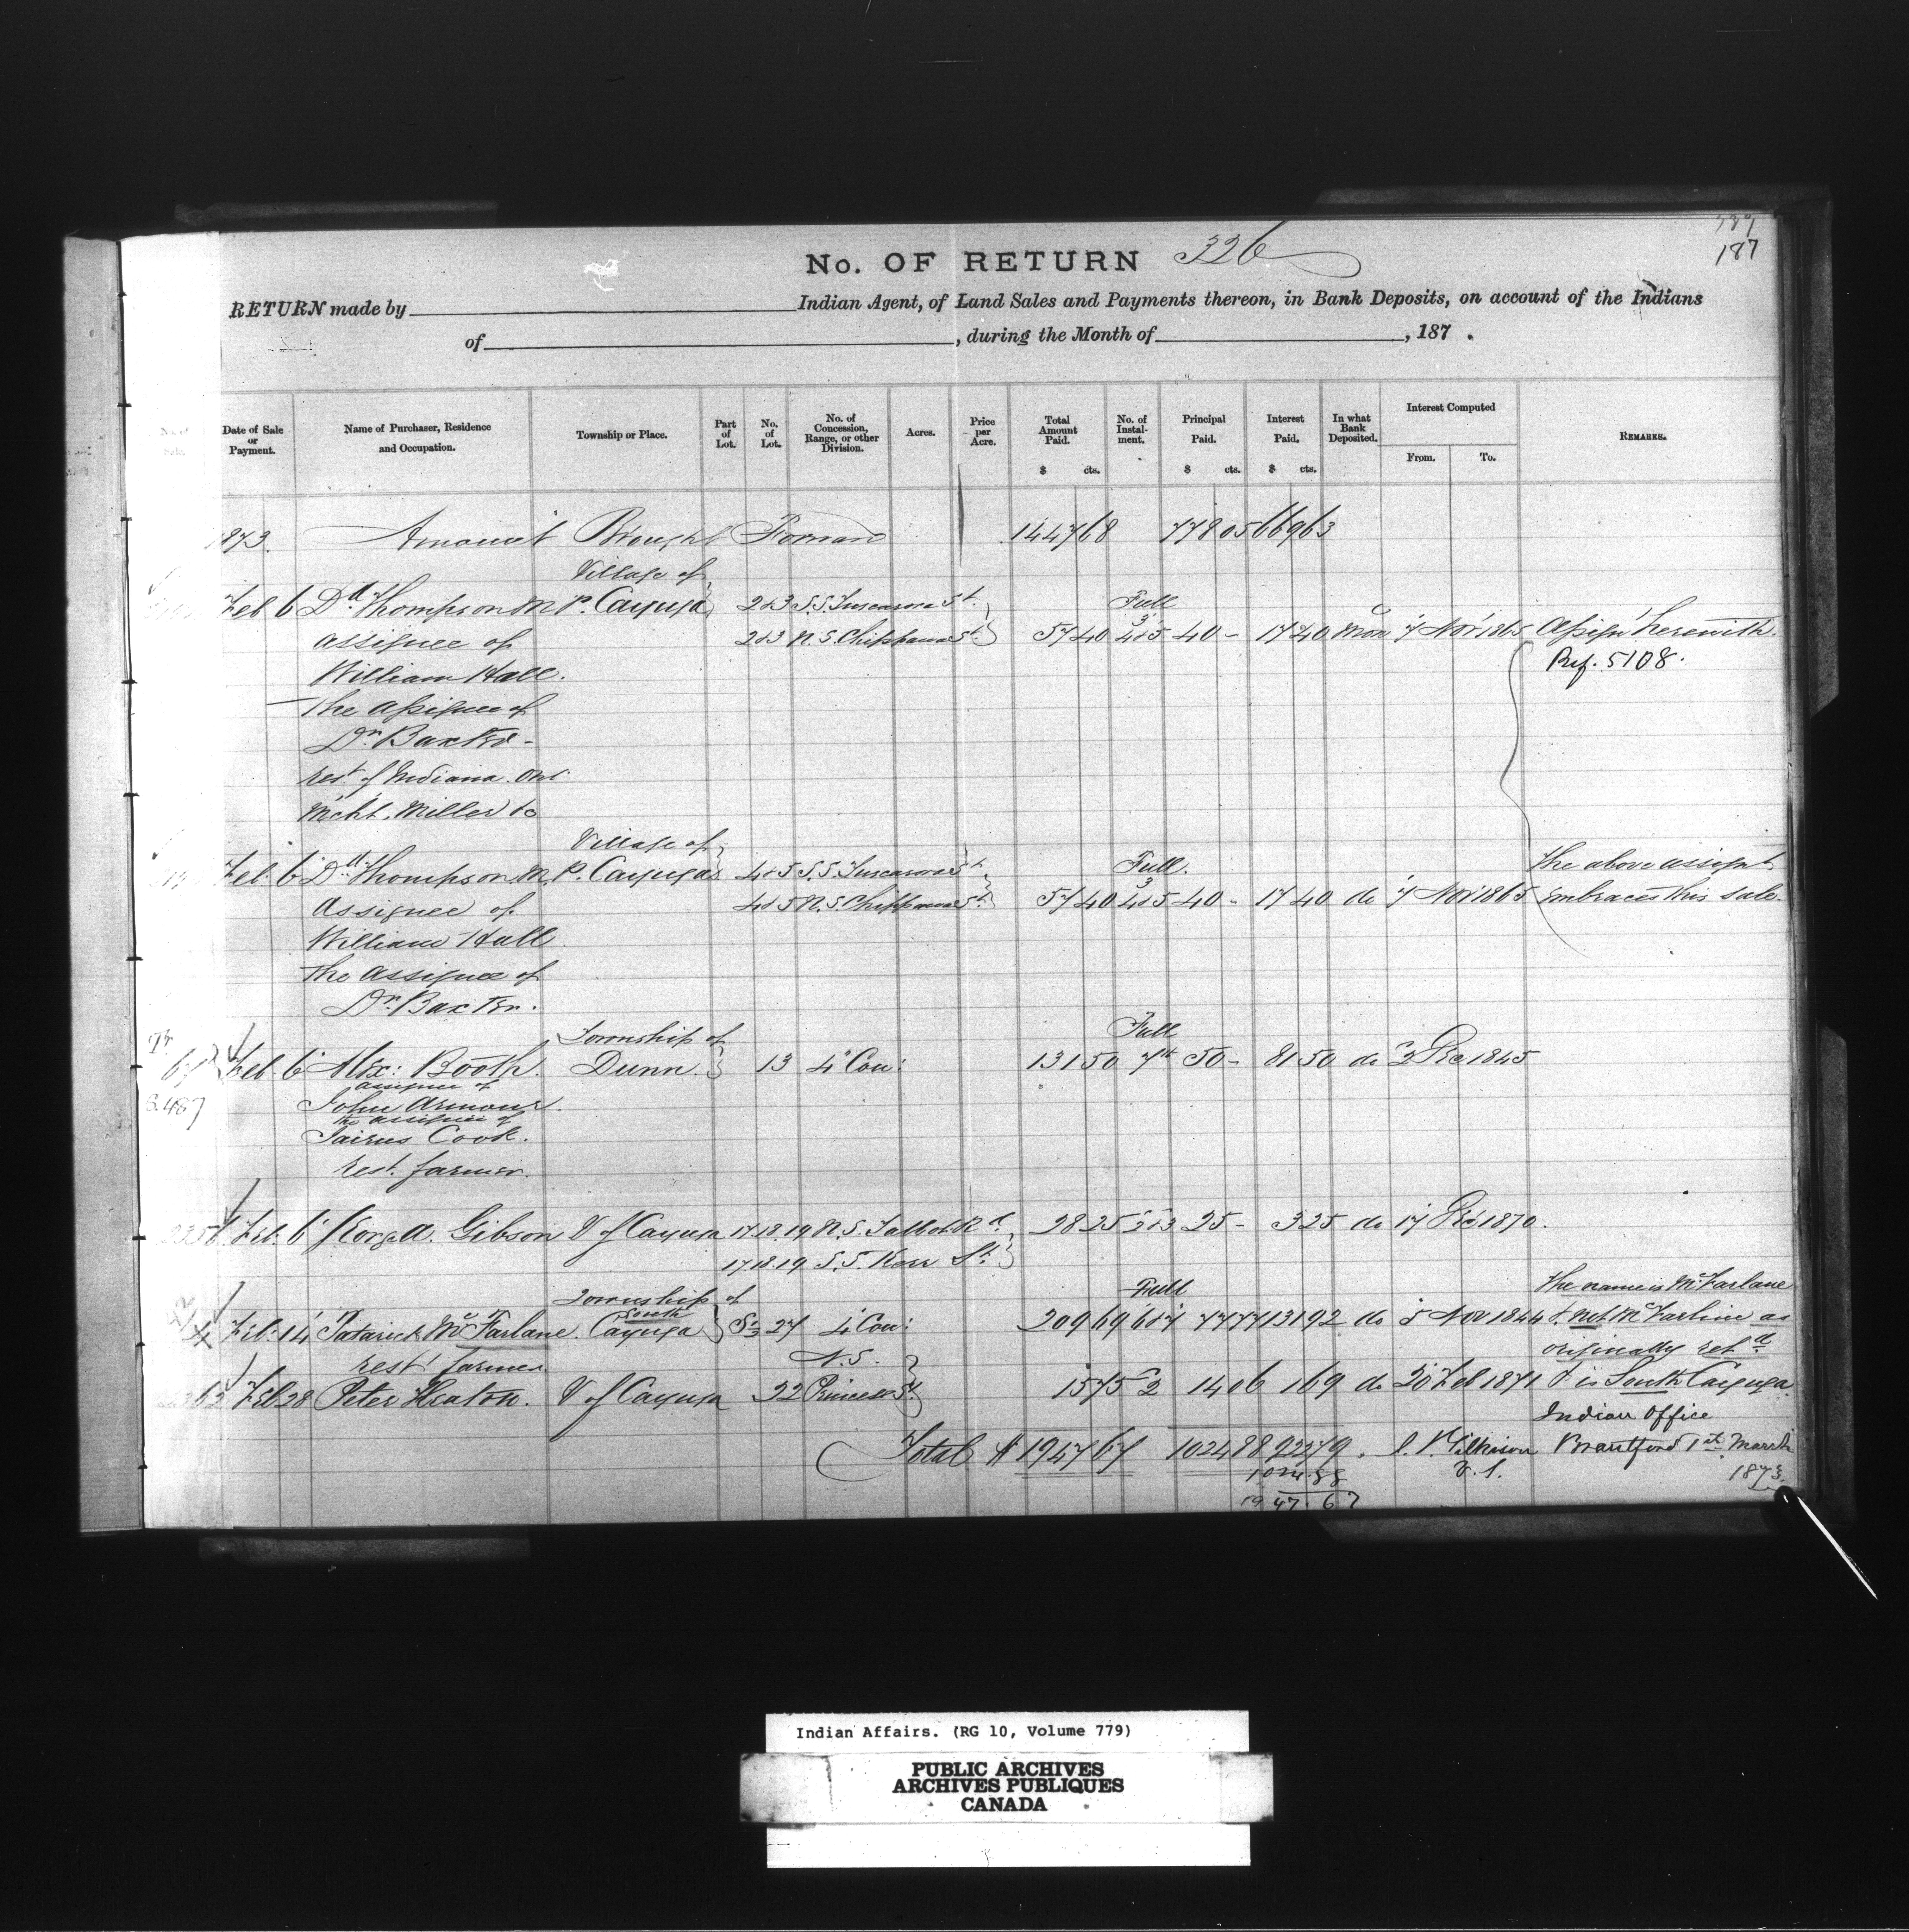 187
No. OF RETURN 326
RETURN made by Indian Agent, of Land Sales and Payments thereon, in Bank Deposits, on account of the Indians
of , during the Month of , 187 .
Date of Sale or Payment. Name of Purchaser, Residence and Occupation. Township or Place. Part of Lot. No. of Lot. No. of Concession, Range, or other Division. Acres. Price per Acre. Total Amount Paid. $ cts. No. of Instal- ment. Principal Paid. $ cts. Interest Paid. $ cts. In what Bank Deposited. Interest Computed From. To. REMARKS.
1873. Amount Brought Forward 1447 68 778 05 669 63
Village of
Feb 6 Dd. Thompson M.P. Cayuga 2&3 S.S. Tuscarora St. Full
assignee of 2&3 N.S. Chippawa St. 57 40 3 4&5 40 - 17 40 Mon 7 Nov 1865 Assign't herewith.
William Hall. Ref. 5108.
The Assignee of
Dr. Baxter -
rest of Indiana. Ont.
Mcht. Miller &c
Village of
Feb. 6 Dd. Thompson M.P. Cayuga 4&5 S.S. Tuscarora St. Full. The above assignt
Assignee of 4&5 N.S. Chippawa St. 57 40 3 4&5 40 - 17 40 do 7 Nov 1865 embraces this sale.
William Hall
the assignee of
Dr. Baxter.
Township of Full
Feb 6 Alex: Booth. Dunn. 13 4 Con: 131 50 7th 50 - 81 50 do 3 Dec 1845
assignee of
S. 487 John Armour.
the assignee of
Jairus Cook.
rest. farmer.
Feb. 6 George A. Gibson V of Cayuga 17.18.19 N.S. Talbot Rd. 28 25 2&3 25 - 3 25 do 17 Dec 1870.
17.18.19 S.S. Kerr St.
Township of Full The name is McFarlane
South
Feb: 14 Patrick McFarlane. Cayuga S½ 27 4 Con: 209 69 6&7 77 77 131 92 do 5 Nov 1844 & not McFarline as
rest farmer N.S. originally retd.
Feb 28 Peter Heaton. V of Cayuga 22 Princess St 15 75 2 14 06 1 69 do 20 Feb 1871 & is South Cayuga
Indian Office
Total $ 1947 67 1024 88 922 79. J. T. Gilkison Brantford 1st March
1024.88 V. S. 1873.
1947.67
Indian Affairs. (RG 10, Volume 779)
PUBLIC ARCHIVES
ARCHIVES PUBLIQUES
CANADA